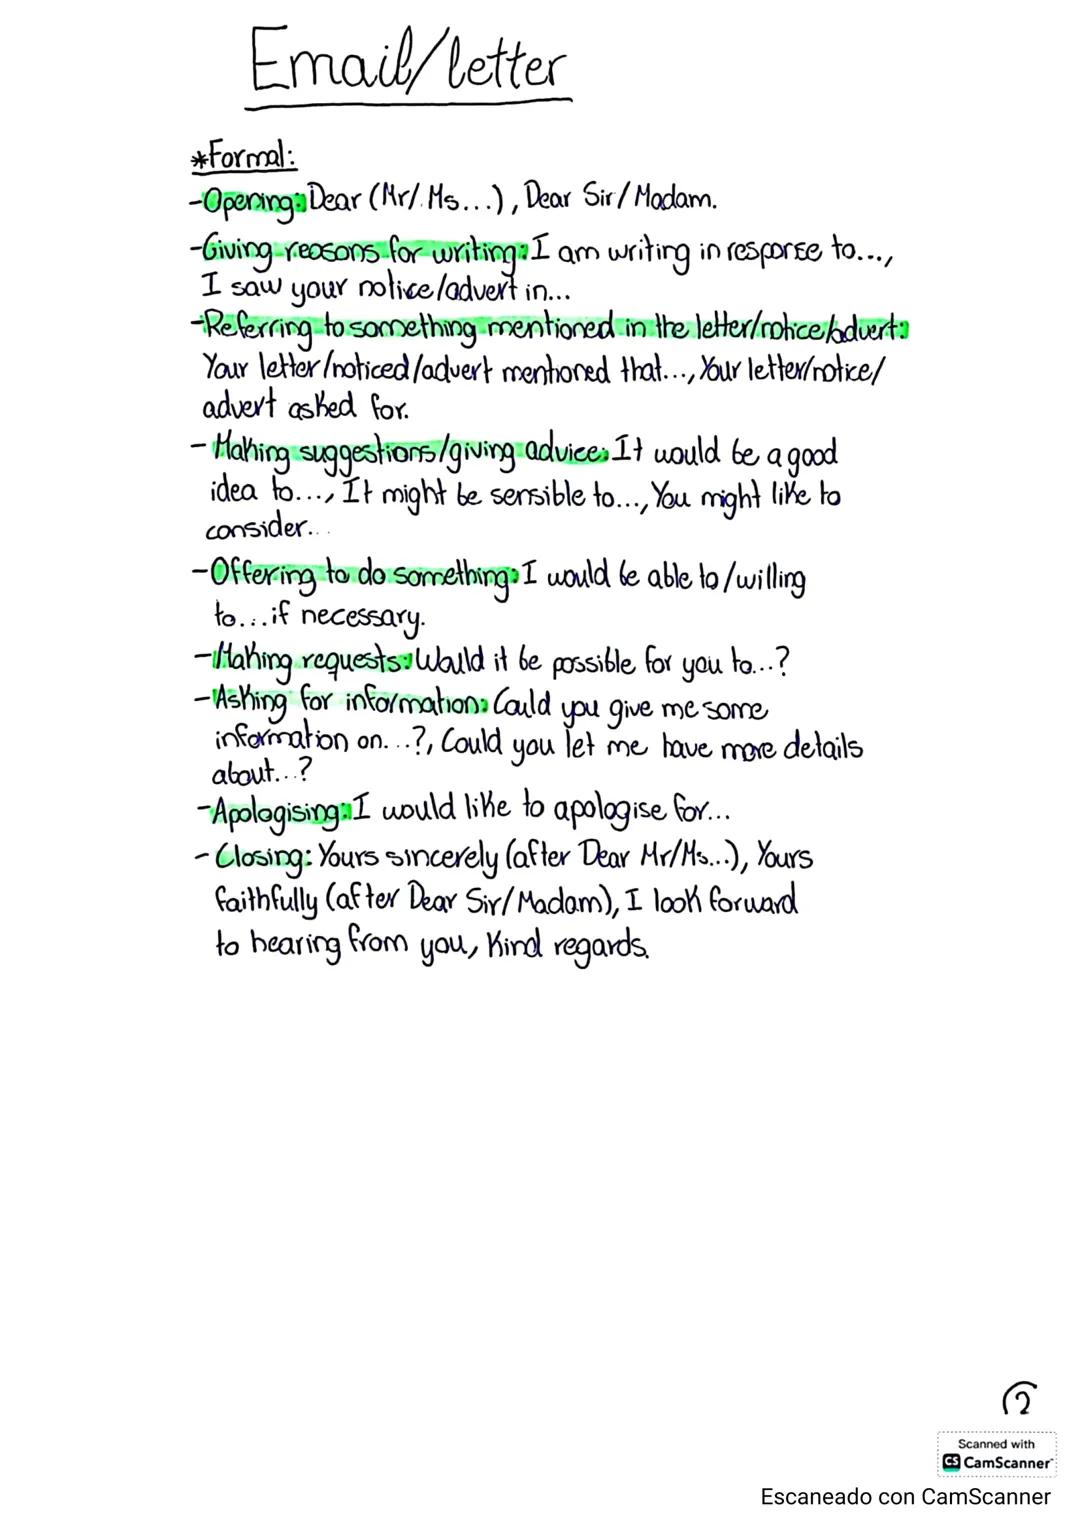 Email/letter
*Formal:
-Opening: Dear (Mr/.Ms...), Dear Sir/Madam.
-Giving reasons for writing: I am writing in response to...,
I saw your notice/advert in...
-Referring to something mentioned in the letter/notice/advert:
Your letter/noticed/advert mentioned that..., Your letter/notice/
advert asked for.
- Making suggestions/giving advice: It would be a good
idea to..., It might be sensible to..., You might like to
consider...
-Offering to do something: I would be able to/willing
to...if necessary.
-Making requests: Would it be possible for you to...?
-Asking for information: Could you give me some
information on...?, Could you let me have more details
about...?
-Apologising: I would like to apologise for...
- Closing: Yours sincerely (after Dear Mr/Ms...), Yours
faithfully (after Dear Sir/Madam), I look forward
to hearing from you, Kind regards.
Scanned with
CS CamScanner
Escaneado con CamScanner